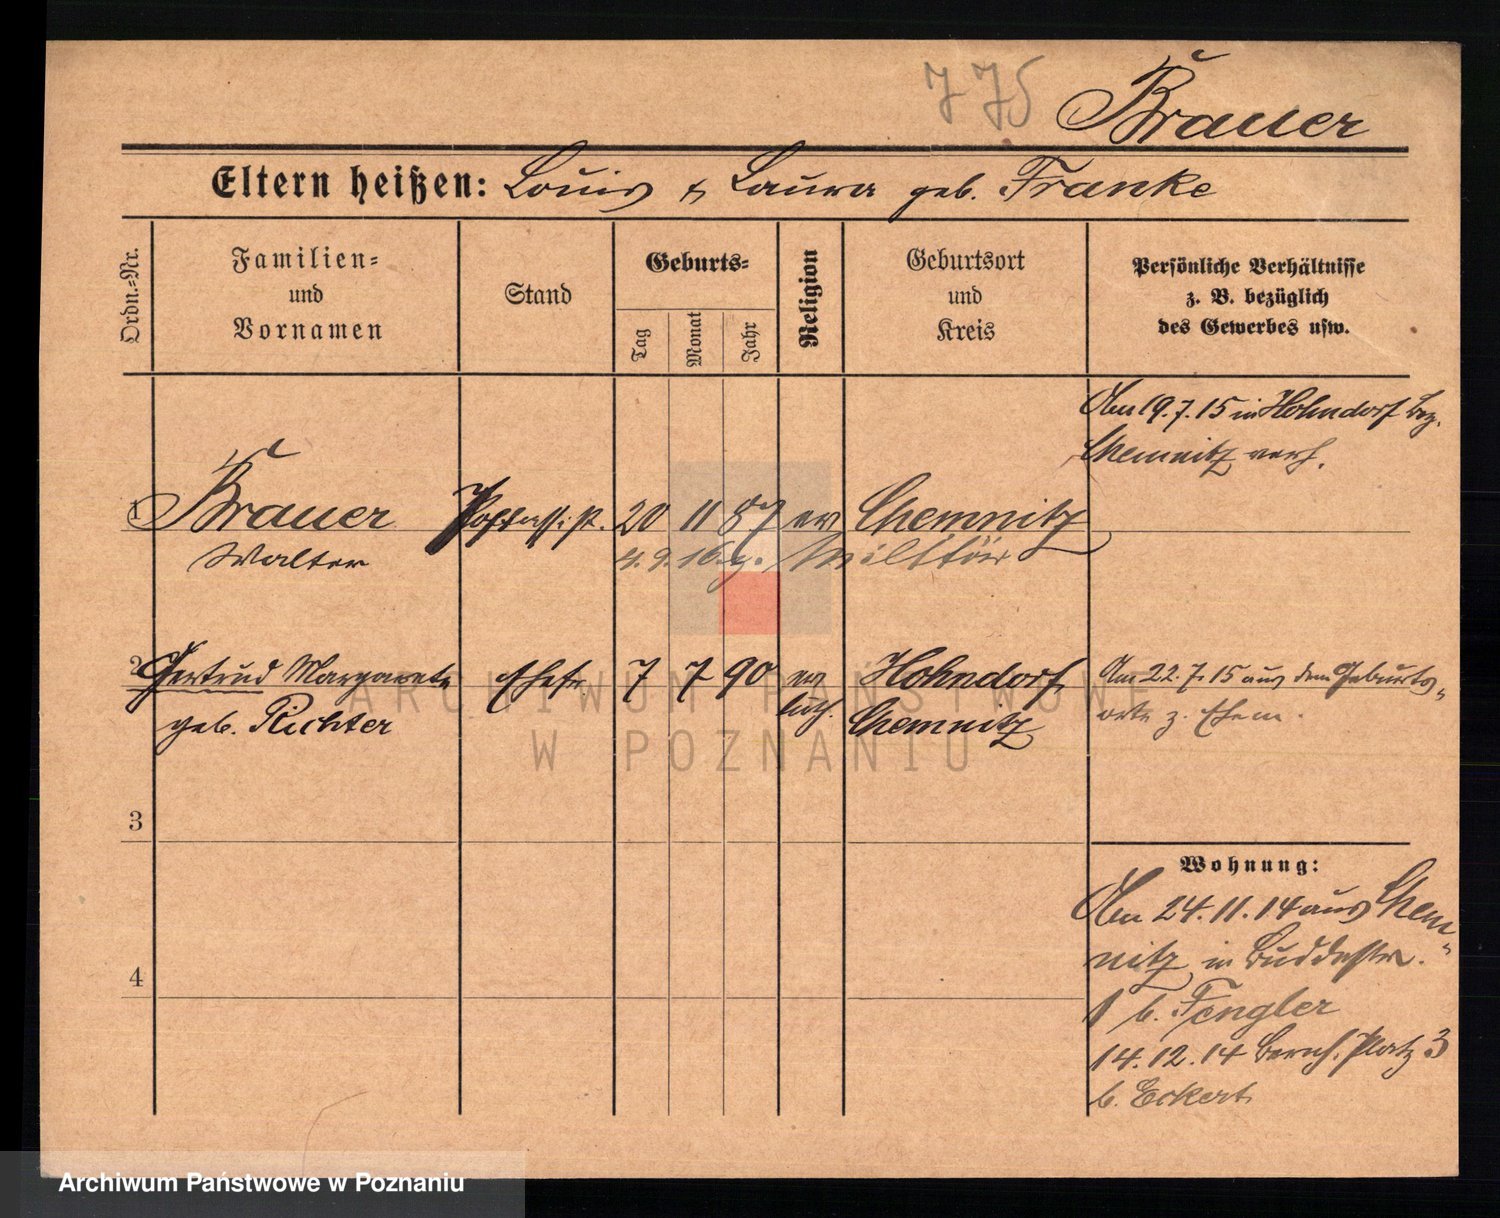 775 Brauer
Eltern heißen: Louis & Laura geb. Franke
Ordn.-Nr.
Familien-
und
Vornamen
Stand
Geburts-
Tag
Monat
Jahr
Religion
Geburtsort
und
Kreis
Persönliche Verhältnisse
z. B. bezüglich
des Gewerbes usw.
Am 19.7.15 in Hohndorf Bez.
Chemnitz verh.
1 Brauer Postassist. 20 11 87 ev Chemnitz
Walter 4.9.16 z. Militär
2 Gertrud Margarete Ehefr. 7 7 90 ev Hohndorf Am 22.7.15 aus dem Geburts-
geb. Richter luth. Chemnitz orte z. Ehem.
3
4
Wohnung:
Am 24.11.14 aus Chem-
nitz in Buddestr.
1 b. Fengler
14.12.14 Bernh. Platz 3
b. Eckert
ARCHIWUM PAŃSTWOWE
W POZNANIU
Archiwum Państwowe w Poznaniu